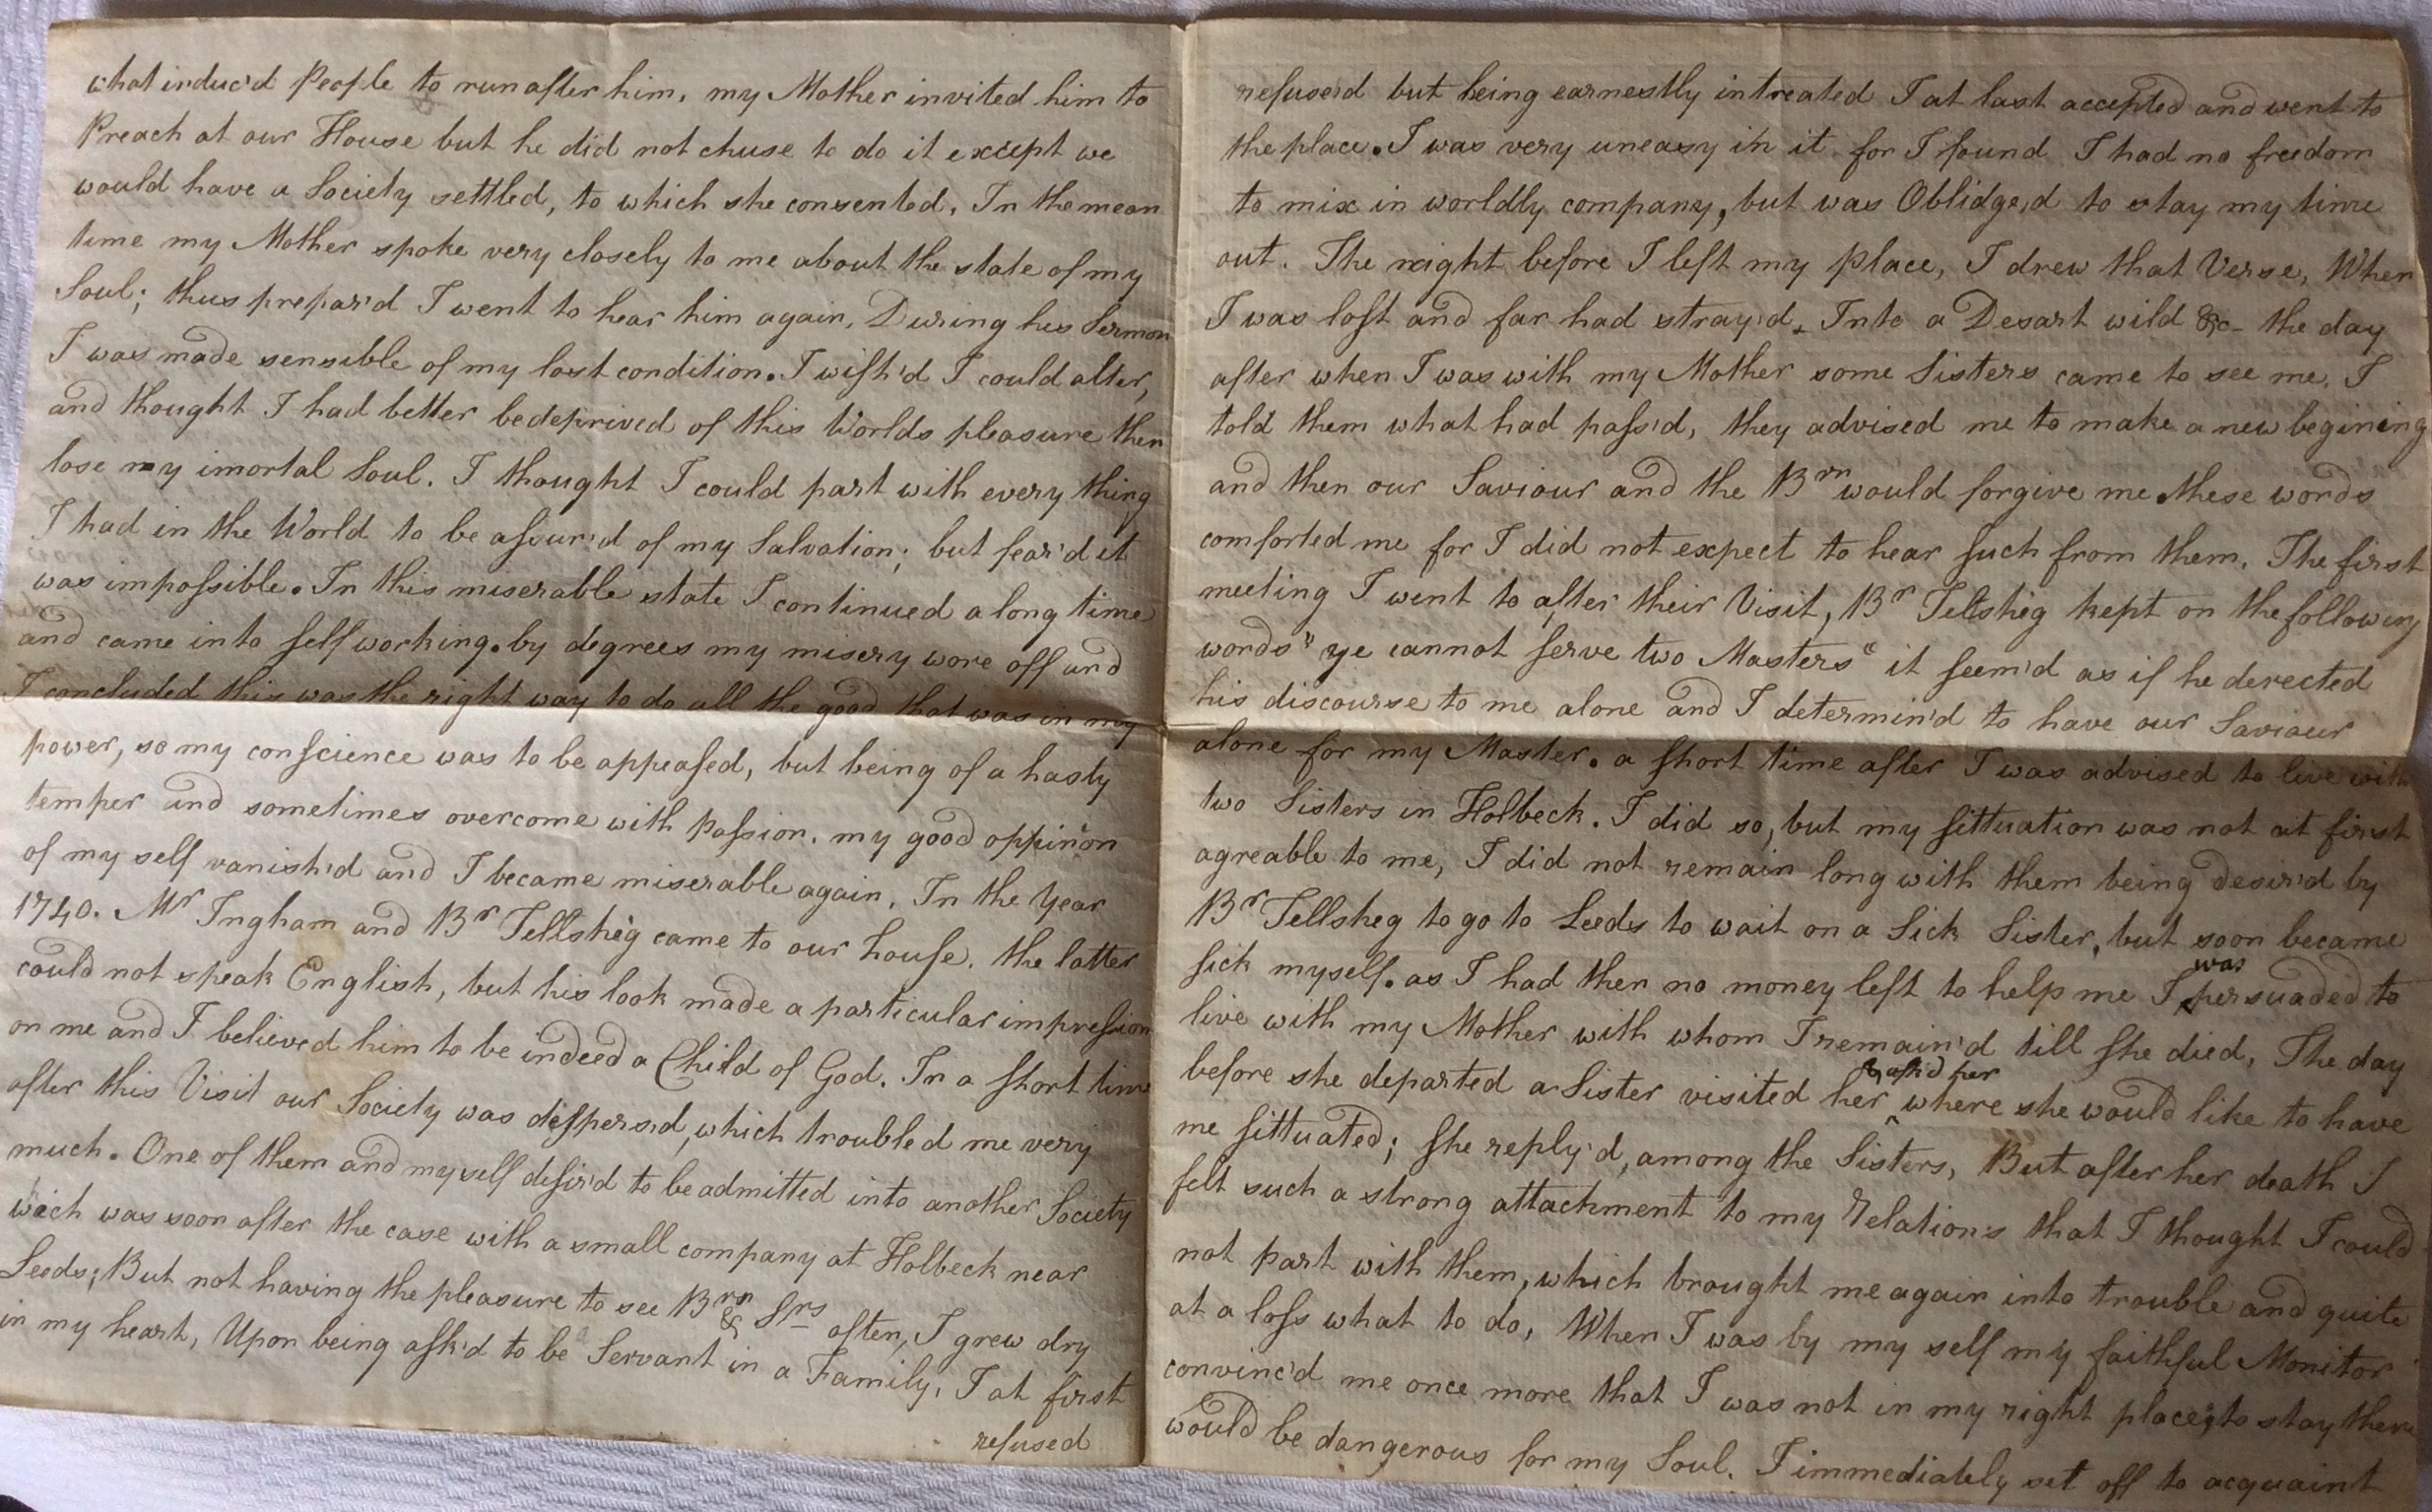 what induc'd People to run after him, my Mother invited him to
Preach at our House but he did not chuse to do it except we
would have a Society settled, to which she consented, In the mean
time my Mother spoke very closely to me about the state of my
Soul; thus prepar'd I went to hear him again, During his Sermon
I was made sensible of my lost condition. I wish'd I could alter,
and thought I had better be deprived of this Worlds pleasure then
lose my imortal Soul. I thought I could part with every thing
I had in the World to be assur'd of my Salvation; but fear'd it
was impossible. In this miserable state I continued a long time
and came into self working. by degrees my misery wore off and
I concluded this was the right way to do all the good that was in my
power, so my conscience was to be appeased, but being of a hasty
temper and sometimes overcome with Passion, my good oppinion
of my self vanish'd and I became miserable again, In the Year
1740. Mr Ingham and Br Tellshig came to our house, the latter
could not speak English, but his look made a particular impression
on me and I believed him to be indeed a Child of God. In a short time
after this Visit our Society was dispersed, which troubled me very
much. One of them and my self desir'd to be admitted into another Society
wich was soon after the case with a small company at Holbeck near
Leeds; But not having the pleasure to see Brn & Srs often, I grew dry
in my heart, Upon being ask'd to be a Servant in a Family, I at first
refused
refuse'd but being earnestly intreated I at last accepted and went to
the place. I was very uneasy in it for I found I had no freedom
to mix in worldly company, but was Oblidge,d to stay my time
out. The night before I left my Place, I drew that Verse, When
I was lost and far had stray'd, Into a Desart wild &c- the day
after when I was with my Mother some Sisters came to see me, I
told them what had pass'd, they advised me to make a new begining
and then our Saviour and the Brn would forgive me. these words
comforted me for I did not expect to hear such from them, The first
meeting I went to after their Visit, Br Tellshig kept on the following
words "ye cannot serve two Masters" it seem'd as if he derected
his discourse to me alone and I determin'd to have our Saviour
alone for my Master. a short time after I was advised to live with
two Sisters in Holbeck. I did so, but my sittuation was not at first
agreable to me, I did not remain long with them being desir'd by
Br Tellsheg to go to Leeds to wait on a Sick Sister, but soon became
sick myself. as I had then no money left to help me I was persuaded to
live with my Mother with whom I remain'd till she died, The day
before she departed a Sister visited her & ask'd her where she would like to have
me sittuated; she reply'd, among the Sisters, But after her death I
felt such a strong attachment to my Relations that I thought I could
not part with them, which brought me again into trouble and quite
at a loss what to do, When I was by my self my faithful Monitor
convinc'd me once more that I was not in my right place; to stay there
would be dangerous for my Soul. I immediately set off to acquaint